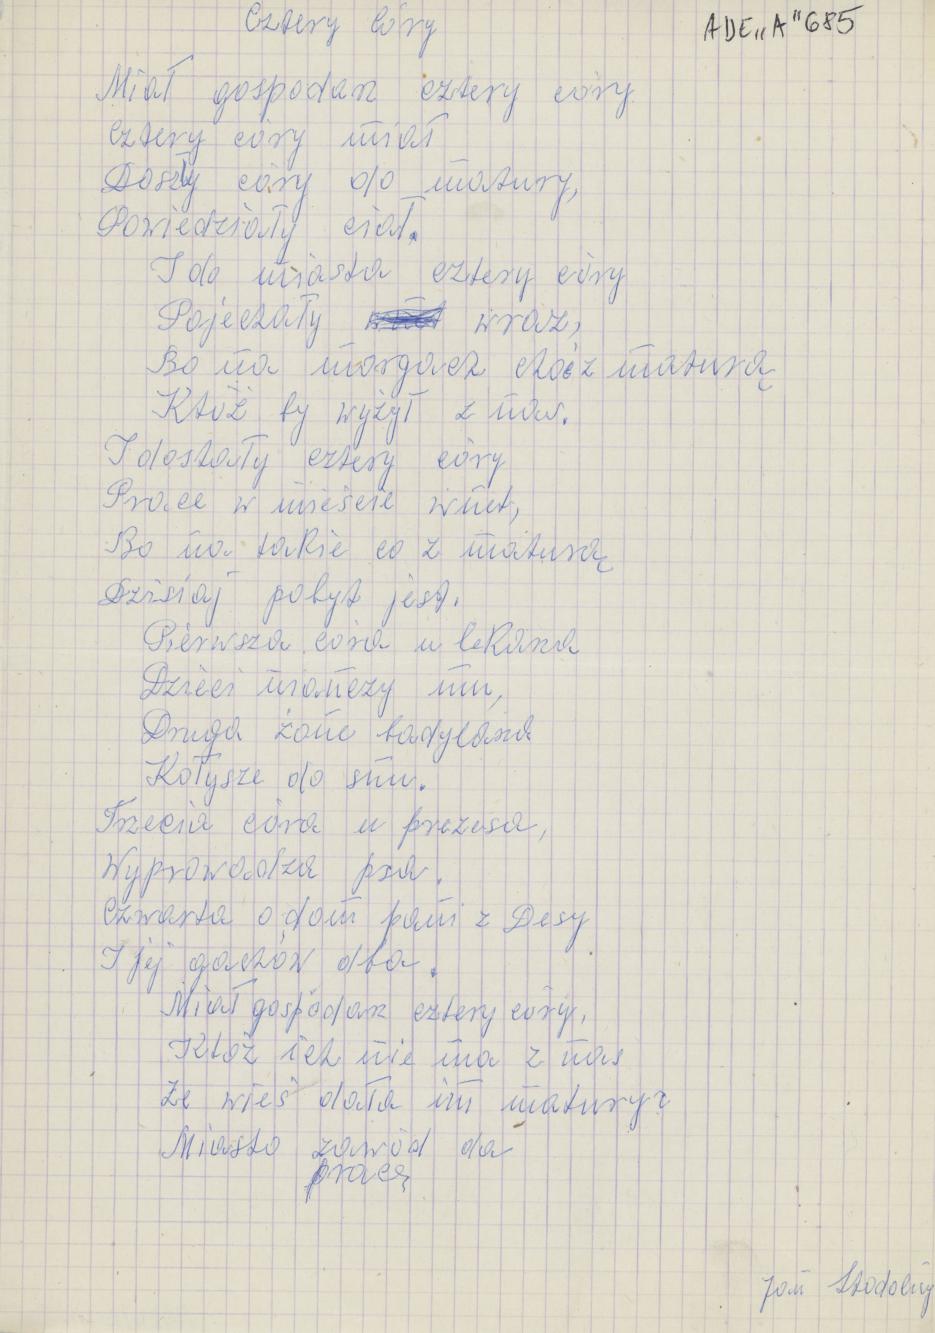 Cztery Córy
ADE „A" 685
Miał gospodarz cztery córy
cztery córy miał
Doszły córy do matury,
Powiedziały ciał.
I do miasta cztery córy
Pojechały wraz,
Bo na morgach choć z maturą
Któż by wyżył z nas.
I dostały cztery córy
Prace w mieście wnet,
Bo na takie co z maturą
Dzisiaj pobyt jest.
Pierwsza córa u lekarza
Dzieci niańczy mu,
Druga żone badylarza
Kołysze do snu.
Trzecia córa u prezesa,
Wyprowadza psa.
Czwarta o dom pani z Desy
I jej gachów dba.
Miał gospodarz cztery córy,
Któż ich nie ma z nas
Że wieś dała im matury?
Miasto zawód da
pracę
Jan Stodolny